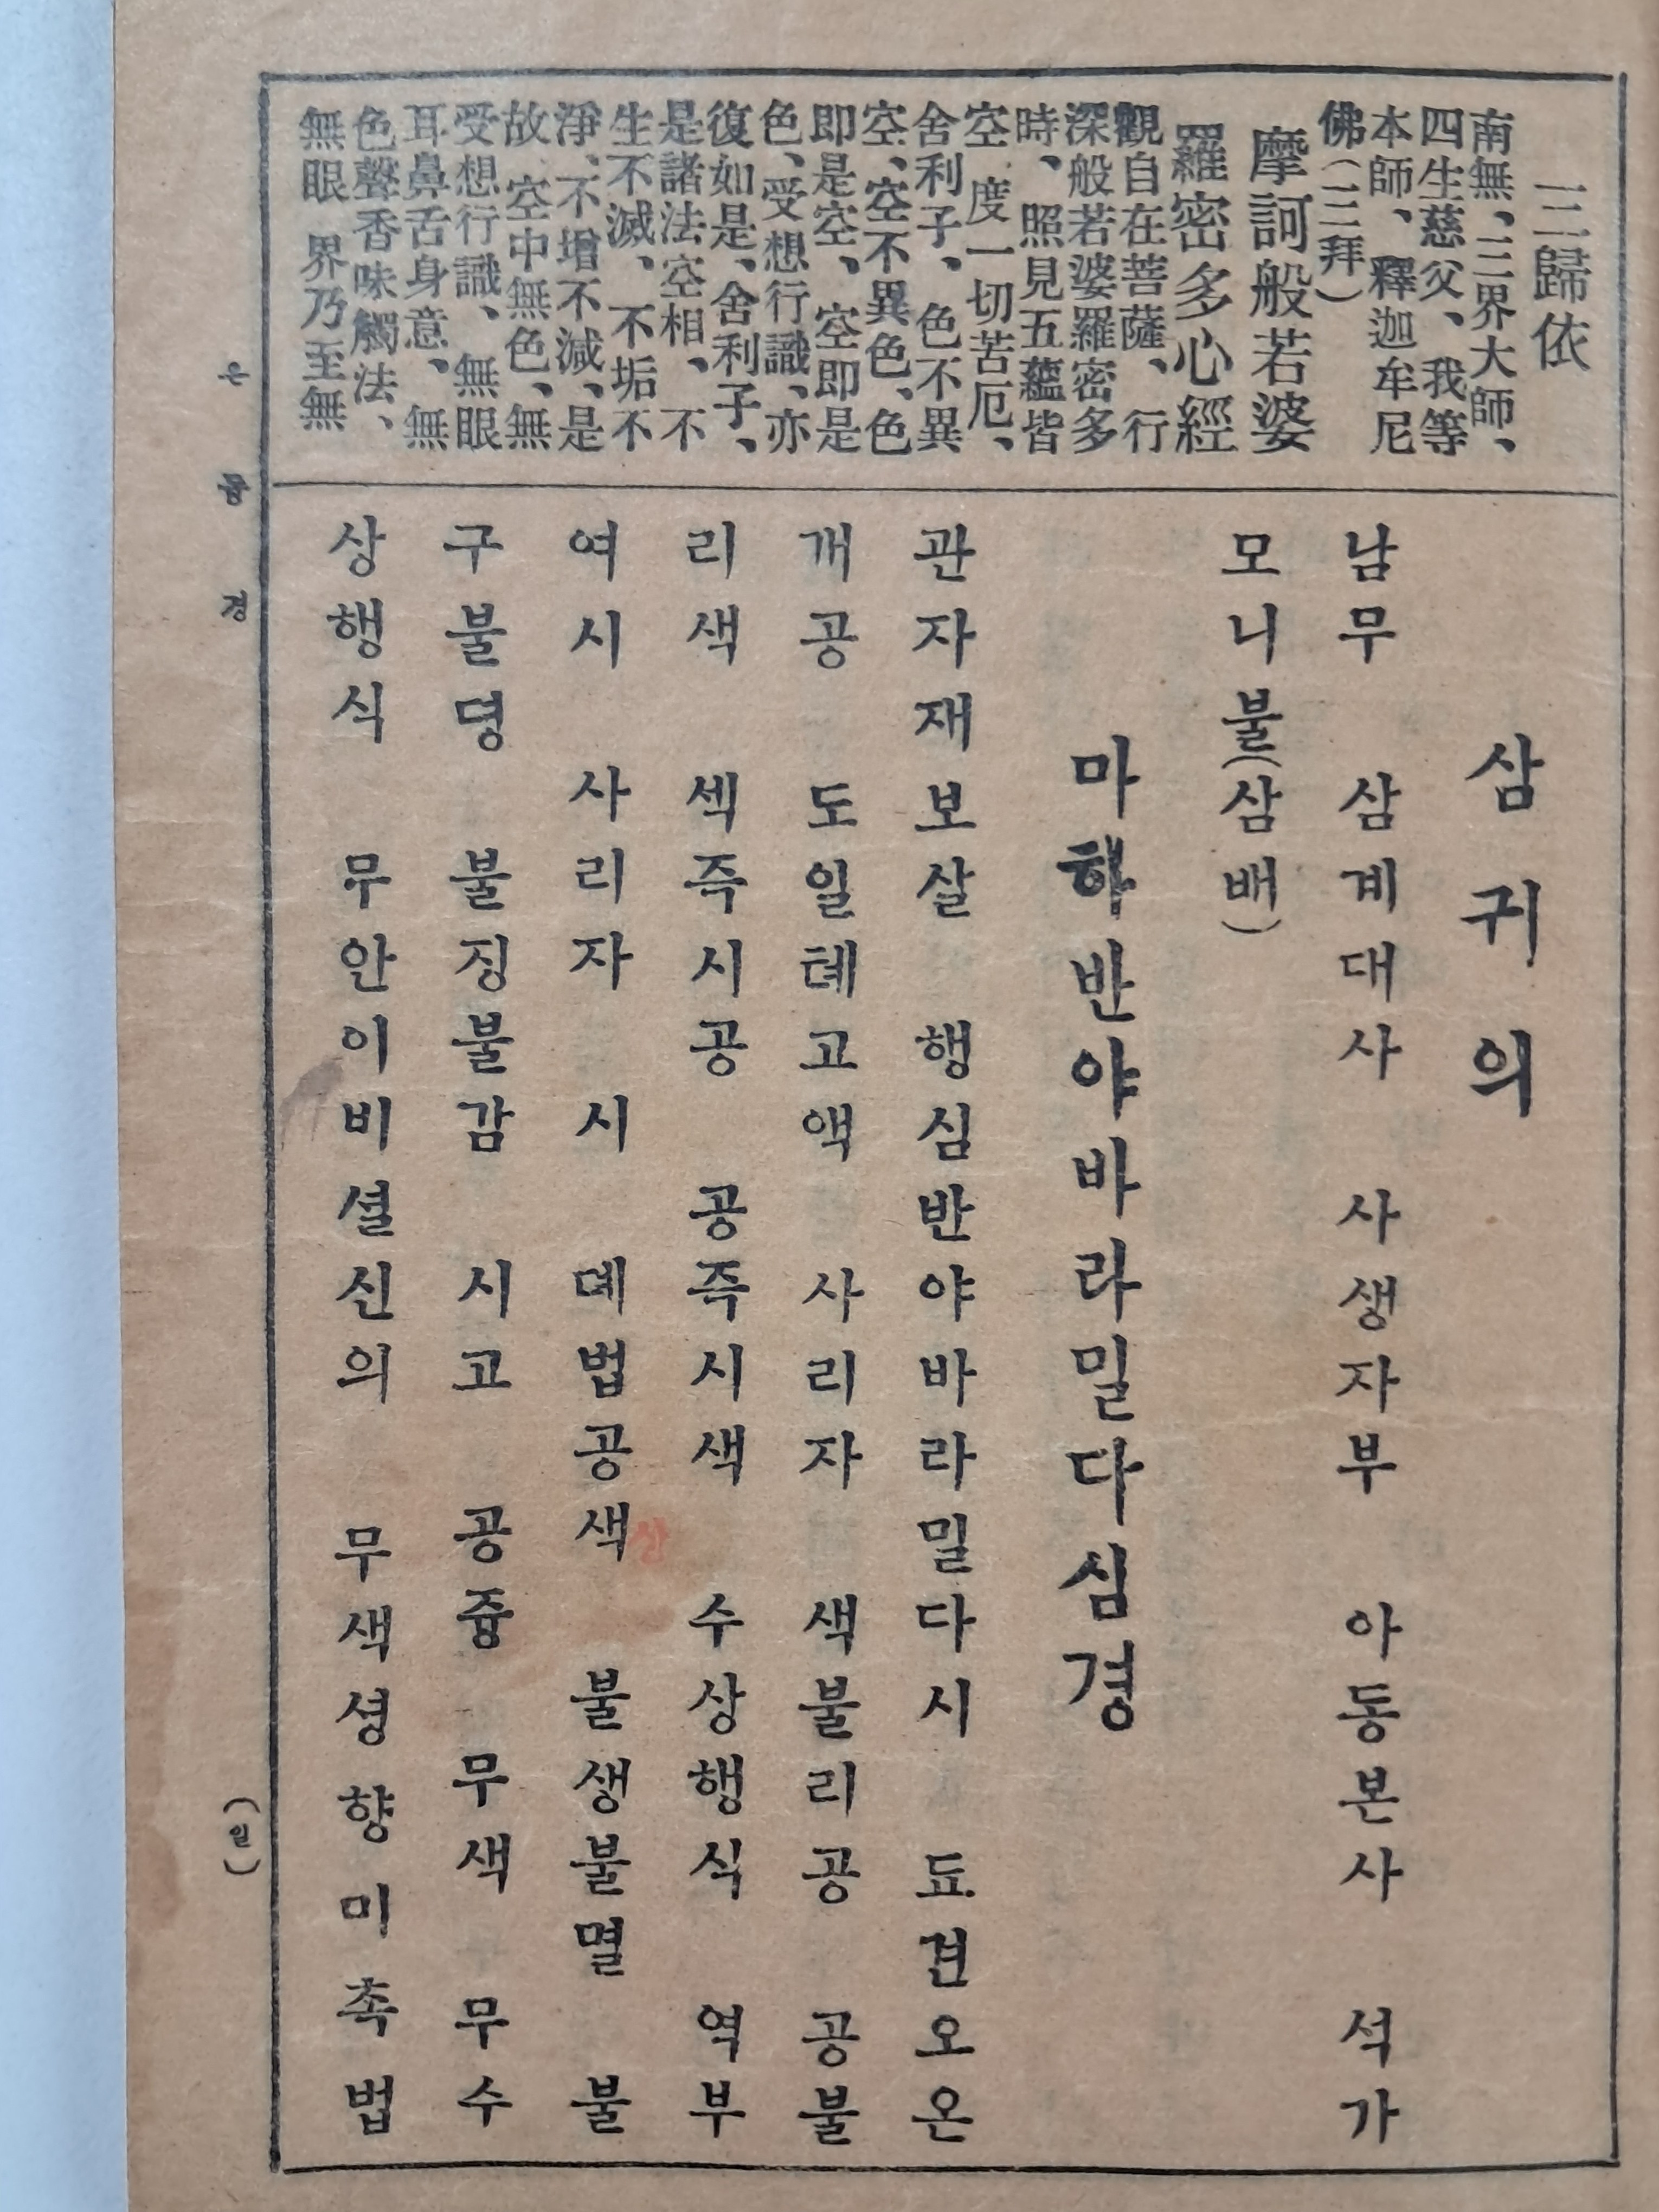 三歸依
南無、三界大師、
四生慈父、我等
本師、釋迦牟尼
佛(三拜)
摩訶般若婆
羅密多心經
觀自在菩薩、行
深般若婆羅密多
時、照見五蘊皆
空 度一切苦厄、
舍利子、色不異
空、空不異色、色
即是空、空即是
色、受想行識、亦
復如是、舍利子、
是諸法空相、不
生不滅、不垢不
淨、不增不減、是
故 空中無色、無
受想行識、無眼
耳鼻舌身意、無
色聲香味觸法、
無眼 界乃至無
삼귀의
남무 삼계대사 사생자부 아동본사 석가
모니불(삼배)
마하반야바라밀다심경
관자재보살 행심반야바라밀다시 됴견오온
개공 도일톄고액 사리자 색불리공 공불
리색 섹즉시공 공즉시색 수상행식 역부
여시 사리자 시 뎨법공색 불생불멸 불
상
구불뎡 불징불감 시고 공즁 무색 무수
상행식 무안이비셜신의 무색셩향미촉법
은듕경
(일)